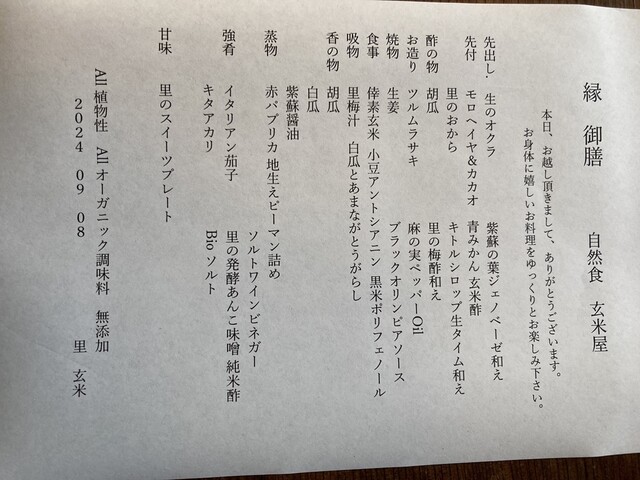 縁 御膳 自然食 玄米屋
本日、お越し頂きまして、ありがとうございます。
お身体に嬉しいお料理をゆっくりとお楽しみ下さい。
先出し・ 生のオクラ 紫蘇の葉ジェノベーゼ和え
先付 モロヘイヤ&カカオ 青みかん 玄米酢
里のおから キトルシロップ生タイム和え
酢の物 胡瓜 里の梅酢和え
お造り ツルムラサキ 麻の実ペッパーOil
焼物 生姜 ブラックオリンピアソース
食事 倖素玄米 小豆アントシアニン 黒米ポリフェノール
吸物 里梅汁 白瓜とあまながとうがらし
香の物 胡瓜
白瓜
紫蘇醤油
蒸物 赤パプリカ 地生えピーマン詰め
ソルトワインビネガー
強肴 イタリアン茄子 里の発酵あんこ味噌 純米酢
キタアカリ Bio ソルト
甘味 里のスイーツプレート
All 植物性 All オーガニック調味料 無添加
2024 09 08 里 玄米